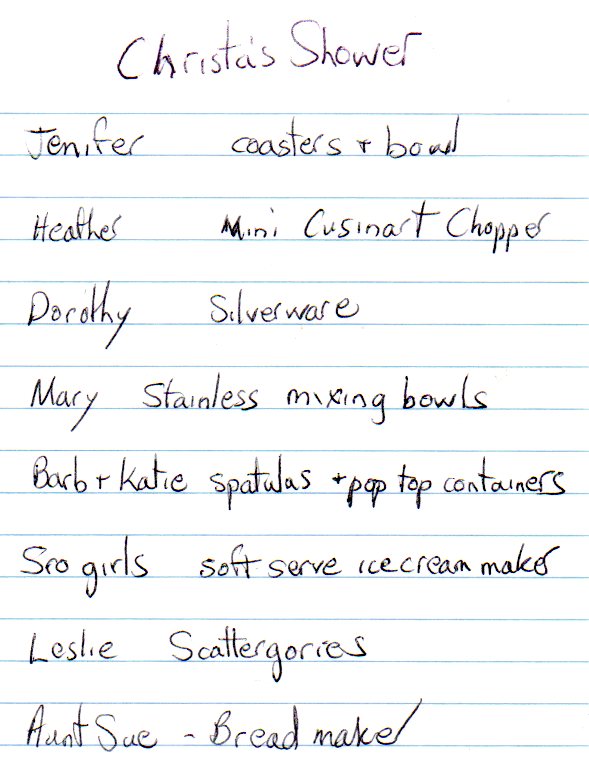 Christa's Shower
Jenifer coasters + bowl
Heather Mini Cusinart Chopper
Dorothy Silverware
Mary Stainless mixing bowls
Barb + Katie spatulas + pop top containers
Sro girls soft serve icecream maker
Leslie Scattergories
Aunt Sue - Bread maker